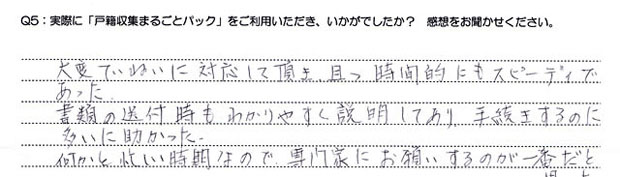 Q5：実際に「戸籍収集まるごとパック」をご利用いただき、いかがでしたか？ 感想をお聞かせください。
大変ていねいに対応して頂き、且つ時間的にもスピーディで
あった.
書類の送付時もわかりやすく説明してあり、手続きするのに
多いに助かった.
何かと忙しい時期なので、専門家にお願いするのが一番だと